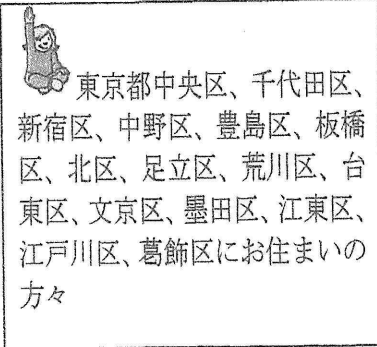 東京都中央区、千代田区、
新宿区、中野区、豊島区、板橋
区、北区、足立区、荒川区、台
東区、文京区、墨田区、江東区、
江戸川区、葛飾区にお住まいの
方々